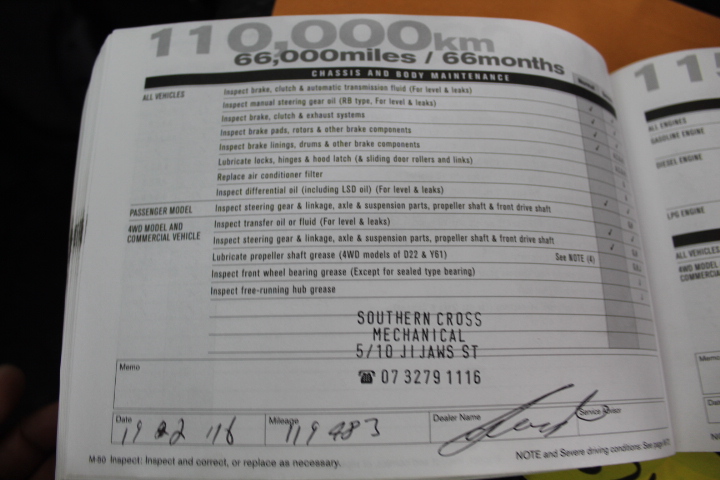 110,000km
66,000miles / 66months
CHASSIS AND BODY MAINTENANCE
ALL VEHICLES
Inspect brake, clutch & automatic transmission fluid (For level & leaks)
Inspect manual steering gear oil (RB type, For level & leaks)
Inspect brake, clutch & exhaust systems
Inspect brake pads, rotors & other brake components
Inspect brake linings, drums & other brake components
Lubricate locks, hinges & hood latch (& sliding door rollers and links)
Replace air conditioner filter
Inspect differential oil (including LSD oil) (For level & leaks)
PASSENGER MODEL
Inspect steering gear & linkage, axle & suspension parts, propeller shaft & front drive shaft
4WD MODEL AND
COMMERCIAL VEHICLE
Inspect transfer oil or fluid (For level & leaks)
Inspect steering gear & linkage, axle & suspension parts, propeller shaft & front drive shaft
Lubricate propeller shaft grease (4WD models of D22 & Y61) See NOTE (4)
Inspect front wheel bearing grease (Except for sealed type bearing)
Inspect free-running hub grease
SOUTHERN CROSS
MECHANICAL
5/10 JIJAWS ST
☎ 07 3279 1116
Memo
Date
Mileage 119483
Dealer Name
Service Advisor
M-50 Inspect: Inspect and correct, or replace as necessary.
NOTE and Severe driving conditions: See page
ALL ENGINES
GASOLINE ENGINE
DIESEL ENGINE
LPG ENGINE
ALL VEHICLES
4WD MODEL